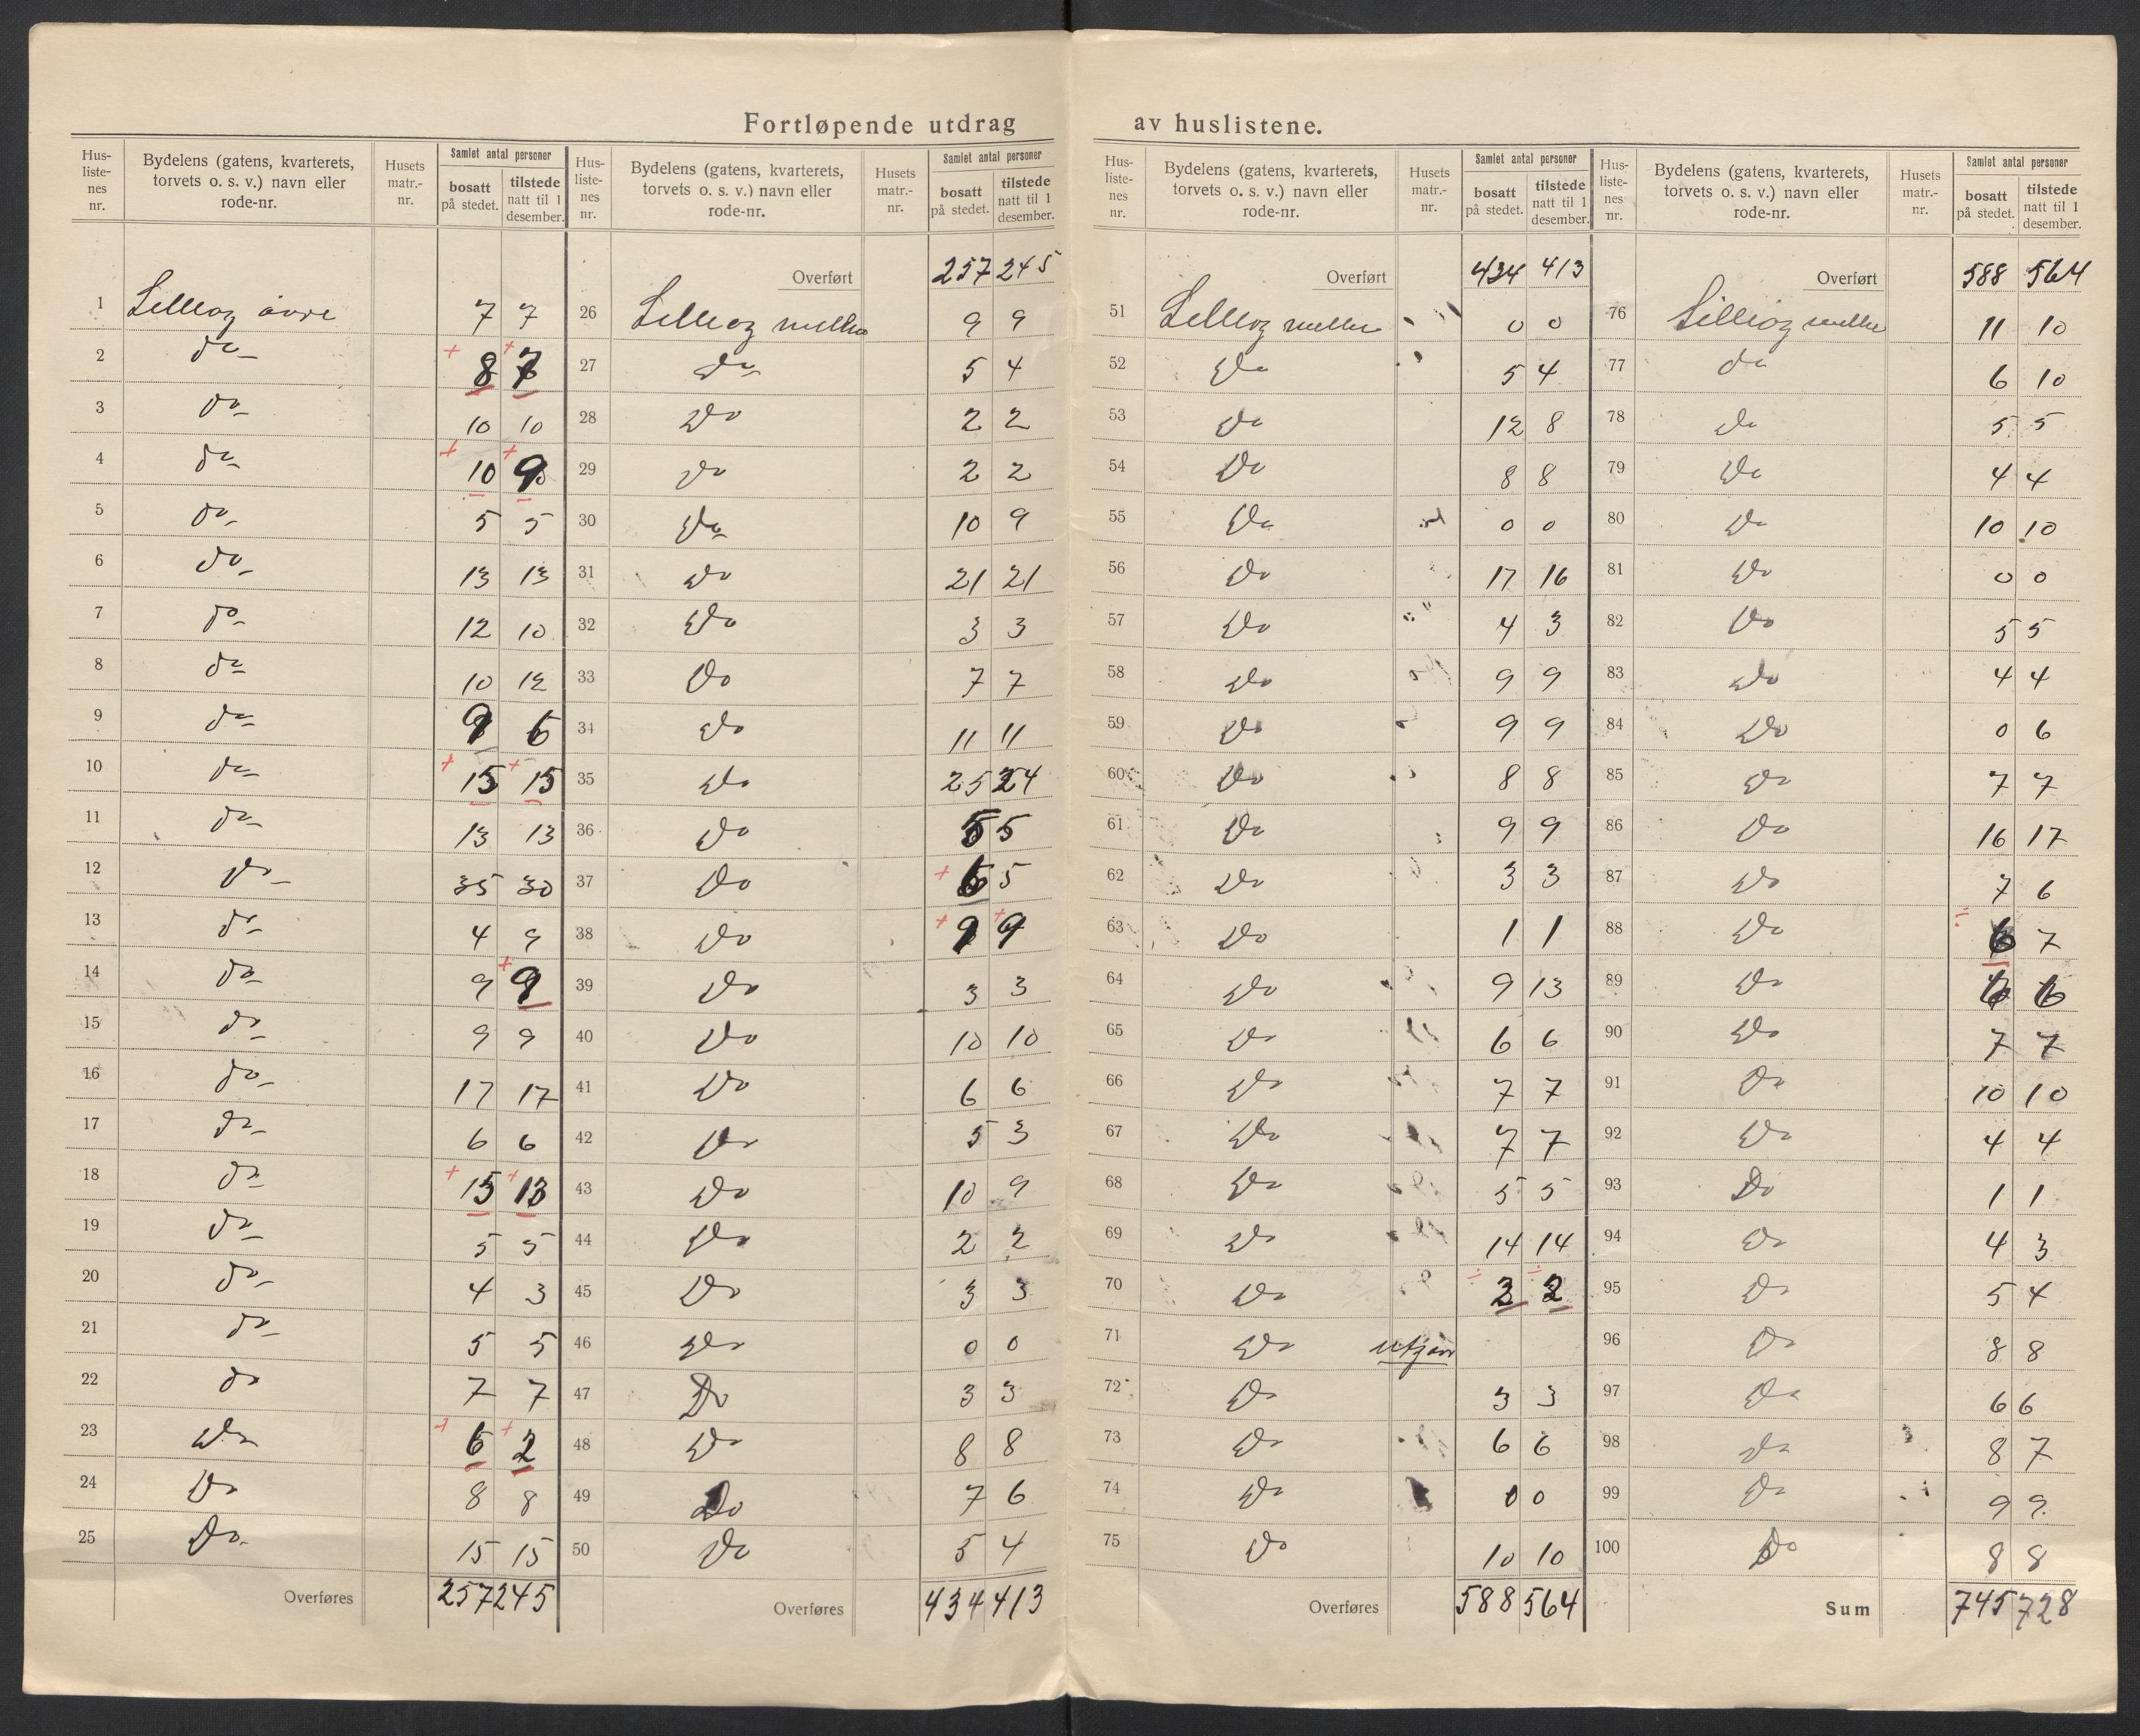 Fortløpende utdrag av huslistene.
Hus-listenes nr. | Bydelens (gatens, kvarterets, torvets o. s. v.) navn eller rode-nr. | Husets matr.-nr. | Samlet antal personer bosatt på stedet. | tilstede natt til 1 desember.
1 Lilleøy øvre 7 7
2 do 8 7
3 do 10 10
4 do 10 9
5 do 5 5
6 do 13 13
7 do 12 10
8 do 10 12
9 do 9 6
10 do 15 15
11 do 13 13
12 do 35 30
13 do 4 9
14 do 9 9
15 do 9 9
16 do 17 17
17 do 6 6
18 do 15 13
19 do 5 5
20 do 4 3
21 do 5 5
22 do 7 7
23 Do 6 2
24 Do 8 8
25 Do 15 15
Overføres 257 245
Hus-listenes nr. | Bydelens (gatens, kvarterets, torvets o. s. v.) navn eller rode-nr. | Husets matr.-nr. | Samlet antal personer bosatt på stedet. | tilstede natt til 1 desember.
Overført 257 245
26 Lilleøy mellem 9 9
27 Do 5 4
28 Do 2 2
29 Do 2 2
30 Do 10 9
31 Do 21 21
32 Do 3 3
33 Do 7 7
34 Do 11 11
35 Do 25 24
36 Do 5 5
37 Do 6 5
38 Do 9 9
39 Do 3 3
40 Do 10 10
41 Do 6 6
42 Do 5 3
43 Do 10 9
44 Do 2 2
45 Do 3 3
46 Do 0 0
47 Do 3 3
48 Do 8 8
49 Do 7 6
50 Do 5 4
Overføres 434 413
Hus-listenes nr. | Bydelens (gatens, kvarterets, torvets o. s. v.) navn eller rode-nr. | Husets matr.-nr. | Samlet antal personer bosatt på stedet. | tilstede natt til 1 desember.
Overført 434 413
51 Lilleøy mellem 0 0
52 Do 5 4
53 Do 12 8
54 Do 8 8
55 Do 0 0
56 Do 17 16
57 Do 4 3
58 Do 9 9
59 Do 9 9
60 Do 8 8
61 Do 9 9
62 Do 3 3
63 Do 1 1
64 Do 9 13
65 Do 6 6
66 Do 7 7
67 Do 7 7
68 Do 5 5
69 Do 14 14
70 Do 2 2
71 Do utgår
72 Do 3 3
73 Do 6 6
74 Do 0 0
75 Do 10 10
Overføres 588 564
Hus-listenes nr. | Bydelens (gatens, kvarterets, torvets o. s. v.) navn eller rode-nr. | Husets matr.-nr. | Samlet antal personer bosatt på stedet. | tilstede natt til 1 desember.
Overført 588 564
76 Lilleøy mellem 11 10
77 Do 6 10
78 Do 5 5
79 Do 4 4
80 Do 10 10
81 Do 0 0
82 Do 5 5
83 Do 4 4
84 Do 0 6
85 Do 7 7
86 Do 16 17
87 Do 7 6
88 Do 6 7
89 Do 6 6
90 Do 7 7
91 Do 10 10
92 Do 4 4
93 Do 1 1
94 Do 4 3
95 Do 5 4
96 Do 8 8
97 Do 6 6
98 Do 8 7
99 Do 9 9
100 Do 8 8
Sum 745 728